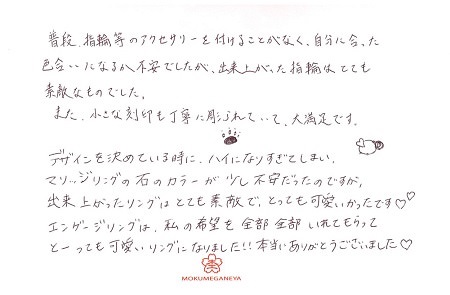 普段、指輪等のアクセサリーを付けることがなく、自分に合った
色合いになるか不安でしたが、出来上がった指輪はとても
素敵なものでした。
また、小さな刻印も丁寧に彫られていて、大満足です。
デザインを決めている時に、ハイになりすぎてしまい、
マリッジリングの石のカラーが少し不安だったのですが、
出来上がったリングはとても素敵で、とっても可愛いかったです♡♡
エンゲージリングは、私の希望を全部全部いれてもらって
とーっても可愛いリングになりました!!本当にありがとうございました♡
MOKUMEGANEYA